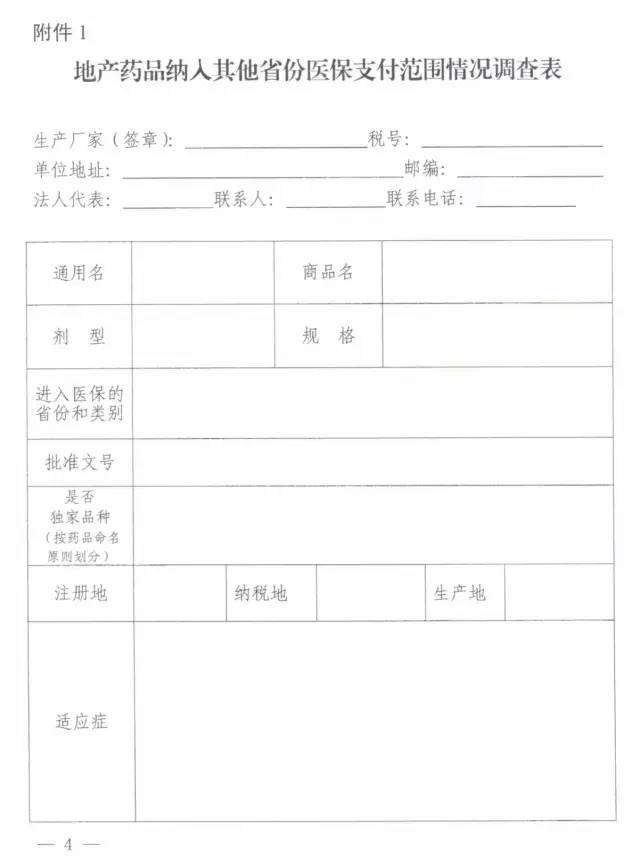 附件 1
地产药品纳入其他省份医保支付范围情况调查表
生产厂家（签章）：税号：
单位地址：邮编：
法人代表：联系人：联系电话：
通用名 商品名
剂 型 规 格
进入医保的
省份和类别
批准文号
是否
独家品种
（按药品命名
原则划分）
注册地 纳税地 生产地
适应症
— 4 —